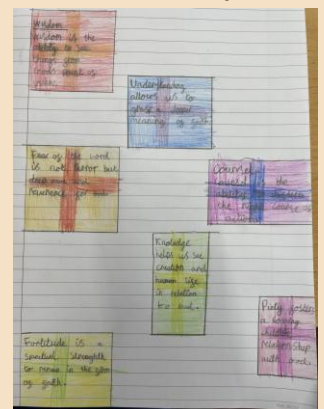 Wisdom
Wisdom is the
ability to see
things from
God's point of
view.
Understanding
allows us to
grasp a deep
meaning of faith.
Fear of the Lord
is not terror but
deep awe and
reverence for God
Counsel
counsel the
ability
the course
Knoledge
helps us see
creation and
in relation
to God.
Piety fosters
a loving
relationship
with God
Fortitude is a
spiritual strenghth
to remain in the
of faith.